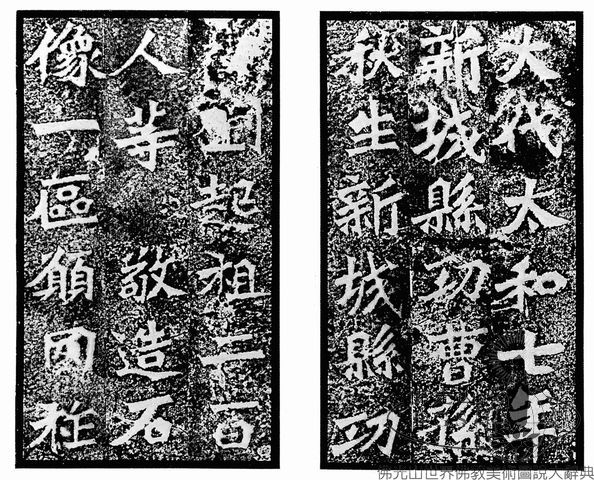 大代太和七年
新城縣功曹孫
秋生新城縣功
劉起祖二百
人等敬造石
像一區願国祚
佛光山世界佛教美術圖說大辭典